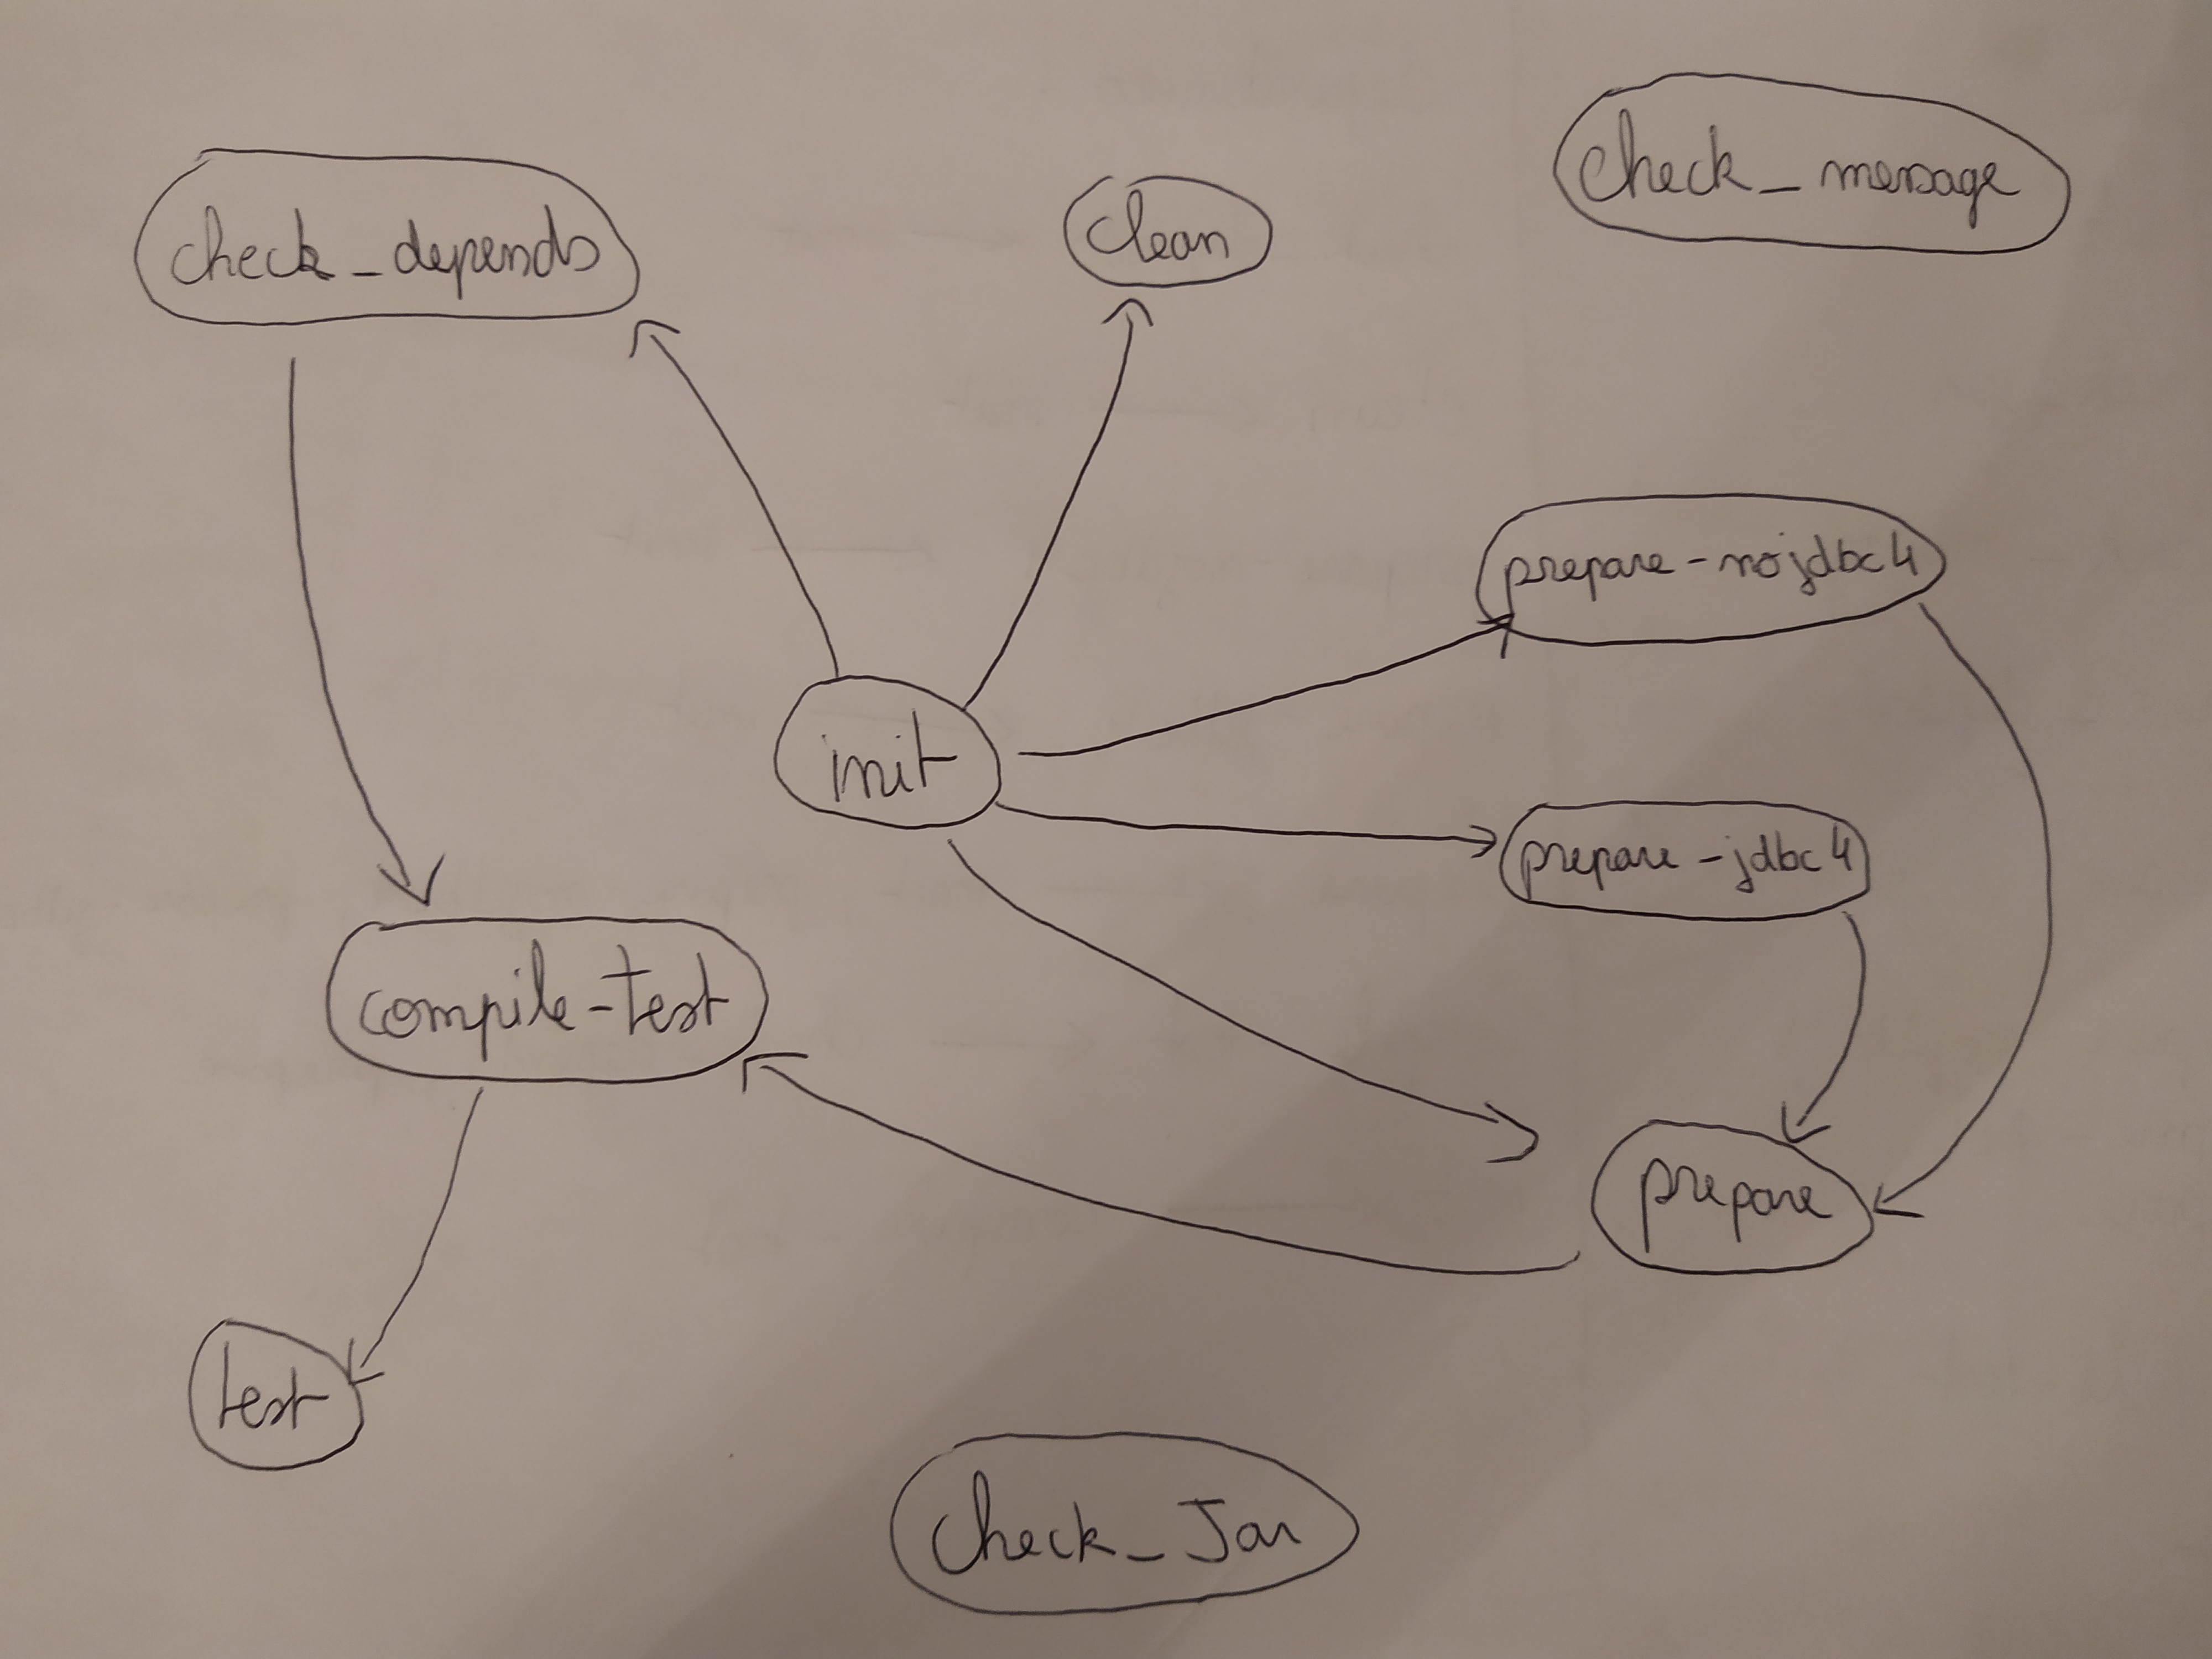 check_message
check_depends
clean
prepare-nojdbc4
init
prepare-jdbc4
compile-test
prepare
test
check_Jar